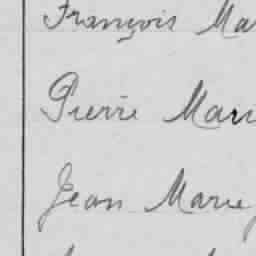 François Ma
Pierre Mari
Jean Marie